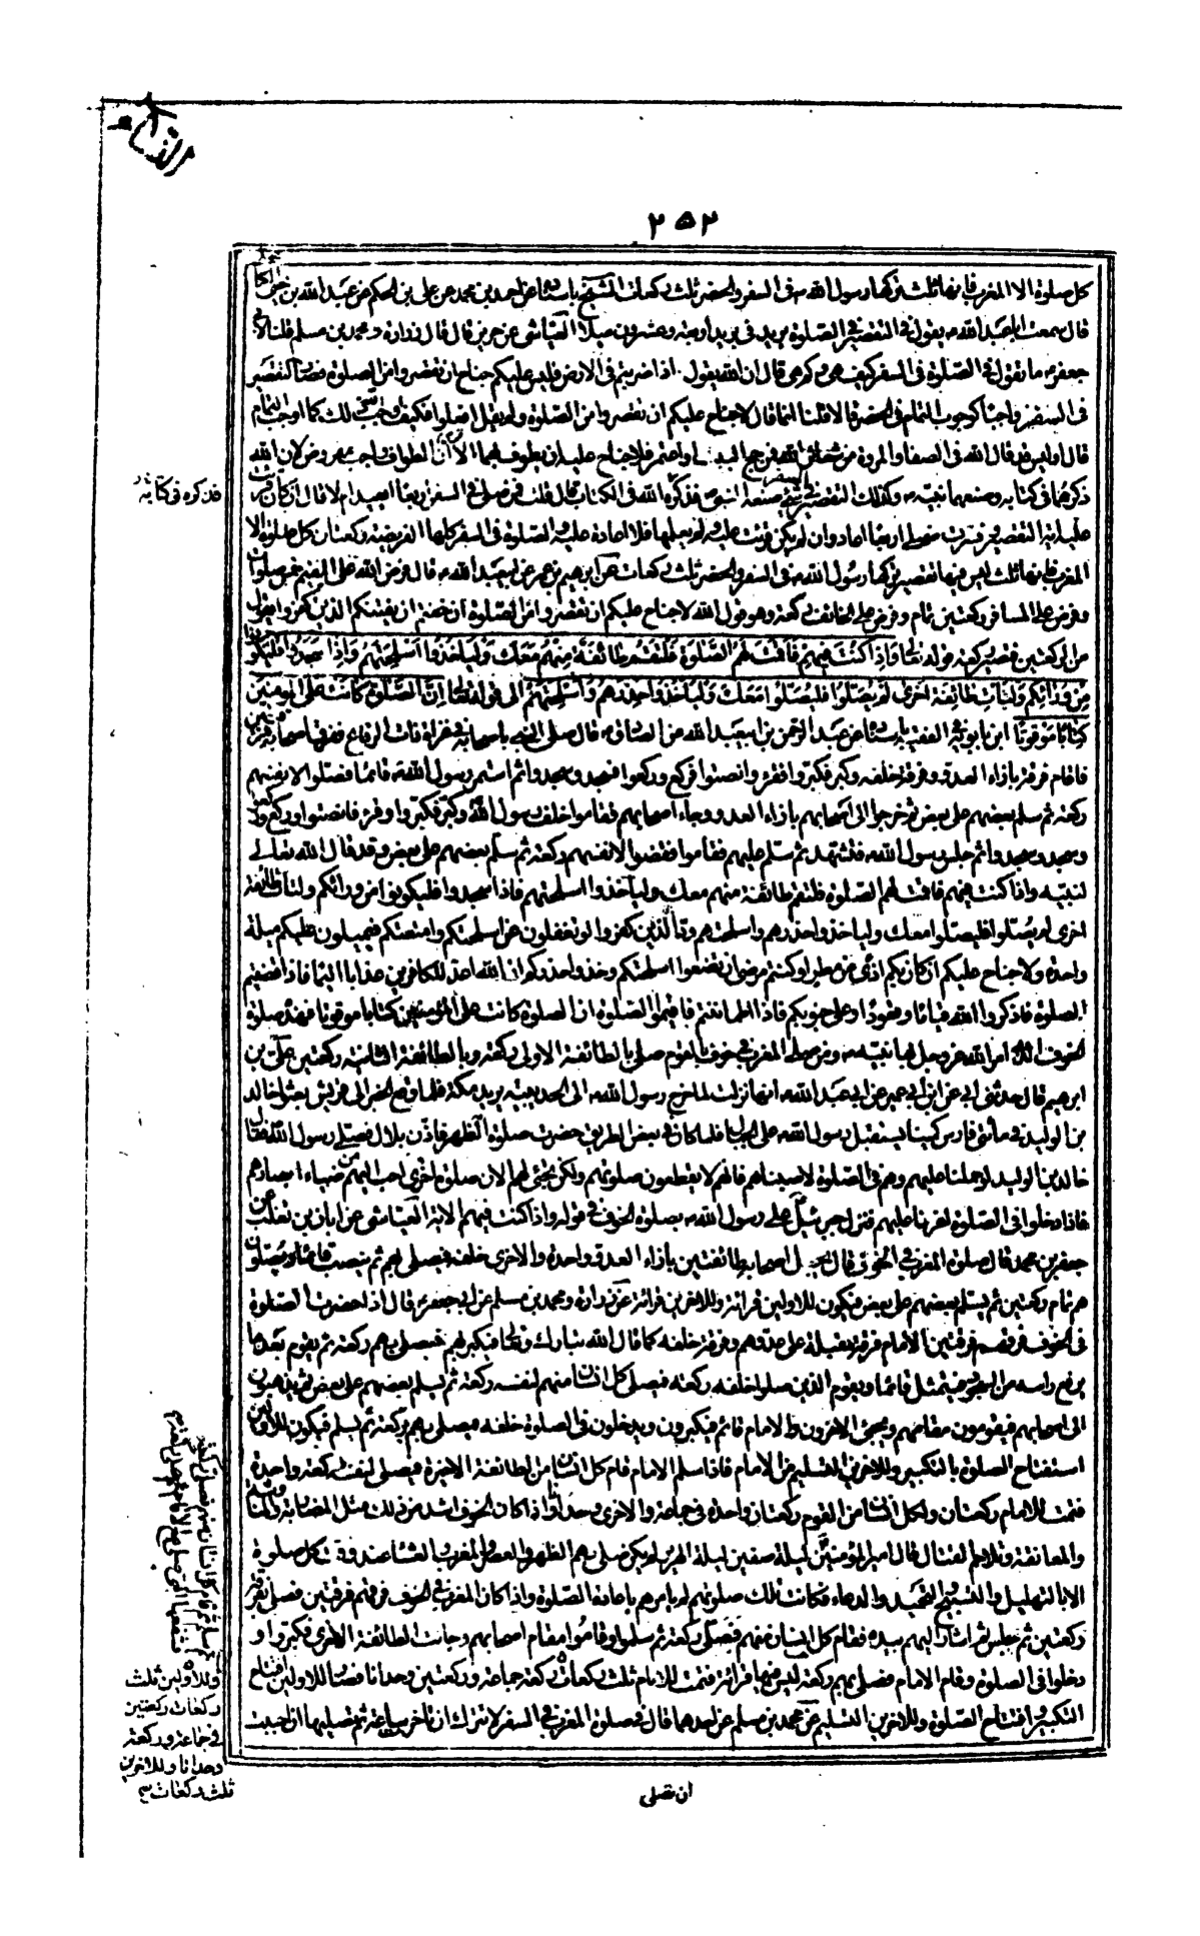 النساء
٢٥٢
كل صلوة الا المغرب فانها ثلث تركها رسول الله ص فى السفر والحضر ثلث ركعات الشيخ باسناده عن احمد بن محمد عن على بن الحكم عن عبد الله بن يحيى الكاهلى
قال سمعت ابا عبد الله ع يقول فى التقصير فى الصلوة بريد فى بريد اربعة وعشرون ميلا العياشى عن حريز قال قال زرارة ومحمد بن مسلم قلنا لابى
جعفر ع ما تقول فى الصلوة فى السفر كيف هى وكم هى قال ان الله يقول اذا ضربتم فى الارض فليس عليكم جناح ان تقصروا من الصلوة فصار التقصير
فى السفر واجبا كوجوب التمام فى الحضر قالا قلنا انما قال لا جناح عليكم ان تقصروا من الصلوة ولم يقل افعلوا فكيف اوجب ذلك كما اوجب التمام
قال اوليس قد قال الله فى الصفا والمروة من شعائر الله فمن حج البيت او اعتمر فلا جناح عليه ان يطوف بهما الا ان الطواف واجب مفروض لان الله
ذكرهما فى كتابه وصنعهما نبيه ص وكذلك التقصير فى السفر شئ صنعه النبى ص فذكره الله فى الكتاب قال قلت فمن صلى فى السفر اربعا ايعيد ام لا قال ان كان قرئت
عليه اية التقصير وفسرت فصلى اربعا اعاد وان لم يكن قرئت عليه ولم يعلمها فلا اعادة عليه والصلوة فى السفر كلها الفريضة ركعتان كل صلوة الا
المغرب فانها ثلث ليس فيها تقصير تركها رسول الله ص فى السفر والحضر ثلث ركعات عن ابرهيم بن عمر عن ابى عبد الله ع قال فرض الله على المقيم خمس صلوات
وفرض على المسافر ركعتين تمام وفرض على الخائف ركعة وهو قول الله لا جناح عليكم ان تقصروا من الصلوة ان خفتم ان يفتنكم الذين كفروا يقول
من الركعتين فتصير ركعة قوله تعالى وَاِذَا كُنْتَ فِيهِمْ فَاَقَمْتَ لَهُمُ الصَّلوةَ فَلْتَقُمْ طَائِفَةٌ مِنْهُمْ مَعَكَ وَلْيَاْخُذُوا اَسْلِحَتَهُمْ فَاِذَا سَجَدُوا فَلْيَكُونُوا
مِنْ وَرَائِكُمْ وَلْتَاْتِ طَائِفَةٌ اُخْرى لَمْ يُصَلُّوا فَلْيُصَلُّوا مَعَكَ وَلْيَاْخُذُوا حِذْرَهُمْ وَاَسْلِحَتَهُمْ الى قوله تعالى اِنَّ الصَّلوةَ كَانَتْ عَلَى الْمُؤْمِنِينَ
كِتَابًا مَوْقُوتًا ابن بابويه فى الفقيه باسناده عن عبد الرحمن بن ابى عبد الله عن الصادق ع قال صلى النبى ص باصحابه فى غزاة ذات الرقاع ففرق اصحابه فرقتين
فاقام فرقة بازاء العدو وفرقة خلفه وكبر فكبروا فقرء وانصتوا فركع وركعوا فسجد وسجدوا ثم استمر رسول الله ص قائما فصلوا لانفسهم
ركعة ثم سلم بعضهم على بعض ثم خرجوا الى اصحابهم فقاموا بازاء العدو وجاء اصحابهم فقاموا خلف رسول الله ص وكبر فكبروا وقرء فانصتوا وركع فركعوا
وسجد وسجدوا ثم جلس رسول الله ص فتشهد ثم سلم عليهم فقاموا فقضوا لانفسهم ركعة ثم سلم بعضهم على بعض وقد قال الله تعالى
لنبيه واذا كنت فيهم فاقمت لهم الصلوة فلتقم طائفة منهم معك ولياخذوا اسلحتهم فاذا سجدوا فليكونوا من ورائكم ولتات طائفة
اخرى لم يصلوا فليصلوا معك ولياخذوا حذرهم واسلحتهم ود الذين كفروا لو تغفلون عن اسلحتكم وامتعتكم فيميلون عليكم ميلة
واحدة ولا جناح عليكم ان كان بكم اذى من مطر او كنتم مرضى ان تضعوا اسلحتكم وخذوا حذركم ان الله اعد للكافرين عذابا اليما فاذا قضيتم
الصلوة فاذكروا الله قياما وقعودا وعلى جنوبكم فاذا اطماننتم فاقيموا الصلوة ان الصلوة كانت على المؤمنين كتابا موقوتا فهذه صلوة
الخوف التى امر الله عز وجل بها نبيه ص ومن صلى المغرب فى خوف بالقوم صلى بالطائفة الاولى ركعة وبالطائفة الثانية ركعتين على بن
ابرهيم قال حدثنى ابى عن ابن ابى عمير عن ابى عبد الله ع انها نزلت لما خرج رسول الله ص الى الحديبية يريد مكة فلما وقع الخبر الى قريش بعثوا خالد
بن الوليد فى مأتى فارس كمينا يستقبل رسول الله ص على الجبال فلما كان فى بعض الطريق حضرت صلوة الظهر فاذن بلال فصلى رسول الله ص بالناس فقال
خالد بن الوليد لو حملنا عليهم وهم فى الصلوة لاصبناهم فانهم لا يقطعون صلوتهم ولكن يجئ لهم الان صلوة اخرى احب اليهم من ضياء ابصارهم
فاذا دخلوا فى الصلوة اغرنا عليهم فنزل جبرئيل على رسول الله ص بصلوة الخوف فى قوله واذا كنت فيهم الاية العياشى عن ابان بن تغلب عن
جعفر بن محمد قال صلوة المغرب فى الخوف قال يجعل اصحابه طائفتين بازاء العدو واحدة والاخرى خلفه فيصلى بهم ثم ينصب قائما ويصلون
هم تمام ركعتين ثم يسلم بعضهم على بعض فيكون للاولين قرائة وللاخرين قرائة عن زرارة ومحمد بن مسلم عن ابى جعفر ع قال اذا حضرت الصلوة
فى الخوف فرقهم الامام فرقتين فرقة مقبلة على عدوهم وفرقة خلفه كما قال الله تبارك وتعالى فيكبر بهم ثم يصلى بهم ركعة ثم يقوم بعد ما
يرفع راسه من السجود فيتمثل قائما ويقوم الذين صلوا خلفه ركعة فيصلى كل انسان منهم لنفسه ركعة ثم يسلم بعضهم على بعض ثم يذهبون
الى اصحابهم فيقومون مقامهم ويجئ الاخرون والامام قائم فيكبرون ويدخلون فى الصلوة خلفه فيصلى بهم ركعة ثم يسلم فيكون للاولين
استفتاح الصلوة بالتكبير وللاخرين التسليم من الامام فاذا سلم الامام قام كل انسان من الطائفة الاخيرة فيصلى لنفسه ركعة واحدة
فتمت للامام ركعتان ولكل انسان من القوم ركعتان واحدة فى جماعة والاخرى وحدانا واذا كان الخوف اشد من ذلك مثل المضاربة والمناوشة
والمعانقة وتلاحم القتال فان امير المؤمنين ع ليلة صفين ليلة الهرير لم يكن صلى بهم الظهر والعصر والمغرب والعشاء عند وقت كل صلوة
الا بالتهليل والتسبيح والتحميد والدعاء فكانت تلك صلوتهم لم يامرهم باعادة الصلوة واذا كان المغرب فى الخوف فرقهم فرقتين فصلى بفرقة
ركعتين ثم جلس ثم اشار اليهم بيده فقام كل انسان منهم فصلى ركعة ثم سلموا وقاموا مقام اصحابهم وجائت الطائفة الاخرى فكبروا و
دخلوا فى الصلوة وقام الامام فصلى بهم ركعة ليس فيها قرائة فتمت للامام ثلث ركعات ركعة جماعة وركعتين وحدانا فصار للاولين افتتاح
التكبير وافتتاح الصلوة وللاخرين التسليم عن محمد بن مسلم عن احدهما قال فى صلوة المغرب فى السفر لا يترك ان تاخر ساعة ثم تصليها ان احببت
ان تصلى
قد ذكره فى كتابه
وللاولين ثلث
ركعات ركعتين
فى جماعة وركعة
وحدانا وللاخرين
ثلث ركعات